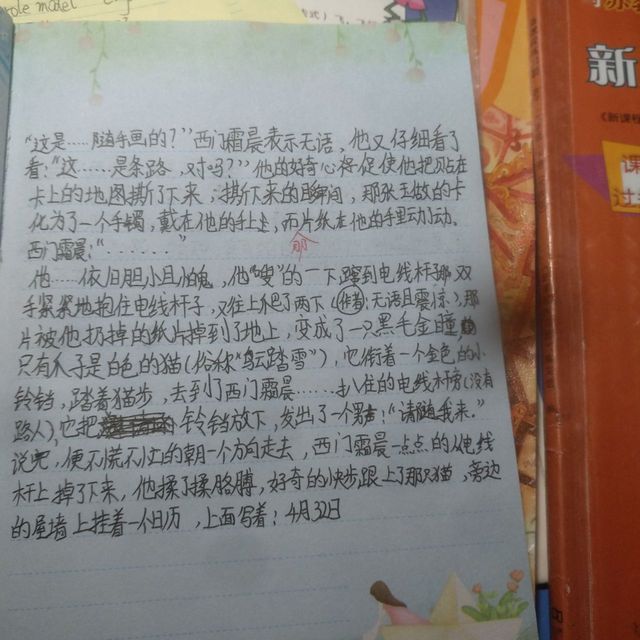 role model
“这是……随手画的？”西门霜晨表示无语，他又仔细看了
看：“这……是条路，对吗？”他的好奇心好促使他把贴在
卡上的地图撕了下来，撕下来的瞬间，那张玉做的卡
化为了一个手镯，戴在他的手上，而片纸在他的手里动了动。
那
西门霜晨：“……”
他……依旧胆小且怕鬼，他“嗖”的一下蹿到电线杆那，双
手紧紧地抱住电线杆子，又往上爬了两下（作者：无语且震惊），那
片被他扔掉的纸片掉到了地上，变成了一只黑毛金瞳，
只有爪子是白色的猫（俗称“乌云踏雪”），它衔着一个金色的小
铃铛，踏着猫步，去到了西门霜晨……扒住的电线杆旁（没有
路人），它把铃铛放下，发出了一个男声：“请随我来。”
说完，便不慌不忙的朝一个方向走去，西门霜晨一点点的从电线
杆上掉了下来，他揉了揉胳膊，好奇的快步跟上了那只猫，旁边
的屋墙上挂着一个日历，上面写着：4月32日
新
《新课程
课
过